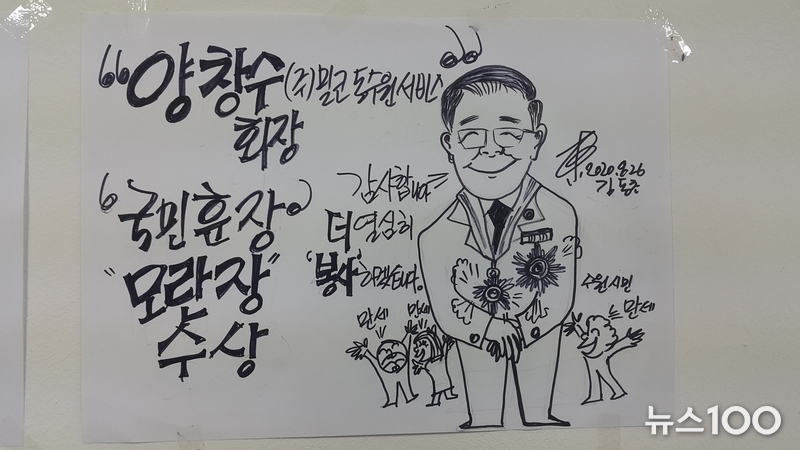 “양창수 (주)밀코 도수원서비스
회장
‘국민훈장’
“모란장”
수상
감사합니다
더 열심히
‘봉사’하겠습니다.
만세
만세
수원시민
만세
2020.8.26
뉴스100